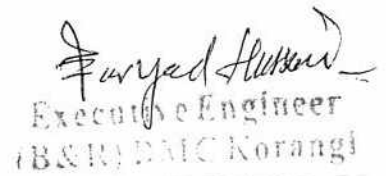 Faryad Hussain
Executive Engineer
(B&R) DMC Korangi